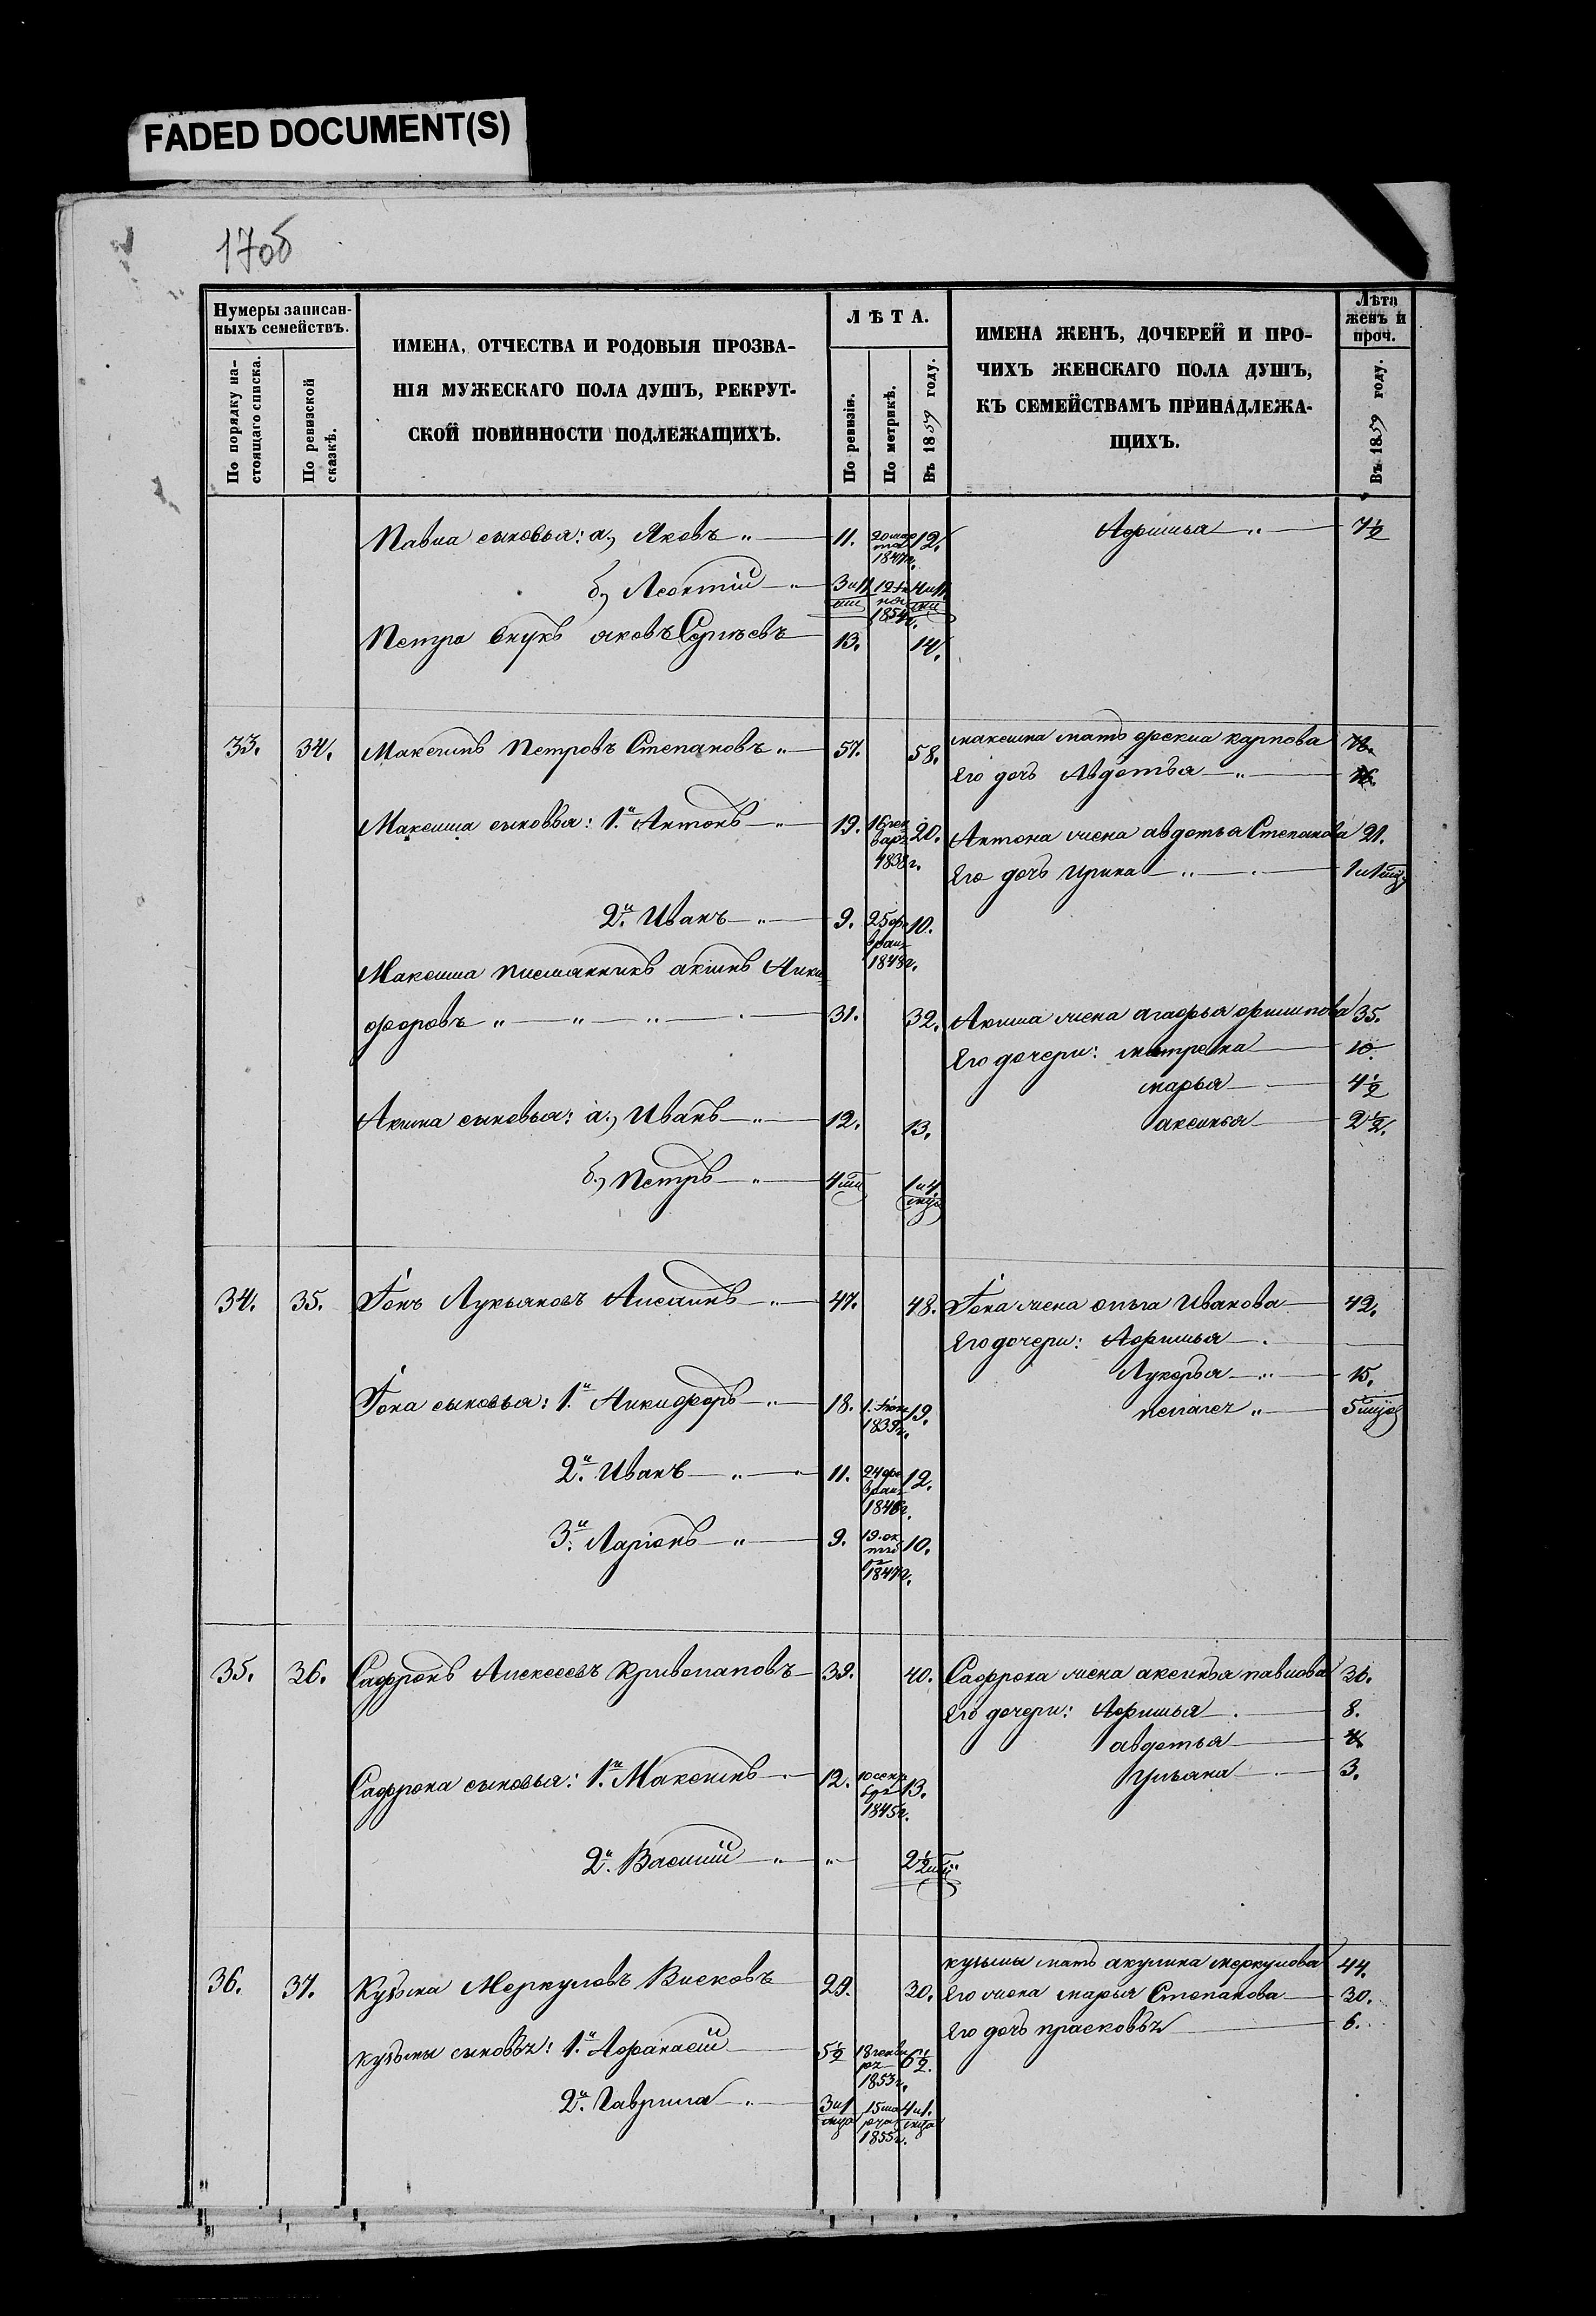 FADED DOCUMENT(S)
170б
Нумеры записан-
ныхъ семействъ.
По порядку на-
стоящаго списка.
По ревизской
сказкѣ.
ИМЕНА, ОТЧЕСТВА И РОДОВЫЯ ПРОЗВА-
НІЯ МУЖЕСКАГО ПОЛА ДУШЪ, РЕКРУТ-
СКОЙ ПОВИННОСТИ ПОДЛЕЖАЩИХЪ.
ЛѢТА.
По ревизіи.
По метрикѣ.
Въ 1859 году.
ИМЕНА ЖЕНЪ, ДОЧЕРЕЙ И ПРО-
ЧИХЪ ЖЕНСКАГО ПОЛА ДУШЪ,
КЪ СЕМЕЙСТВАМЪ ПРИНАДЛЕЖА-
ЩИХЪ.
Лѣта
женъ и
проч.
Въ 1859 году.
Павла сыновья: а., Яковъ „ 11. 20 мар
та
1847г. 12. Афимья „ 7½
б., Леонтій „ 3 и 11 1854г. 4 и 11
Петра внукъ яковъ Сергѣевъ 13. 14.
33. 34. Максимъ Петровъ Степановъ „ 57. 58. максима мать фекла карпова
Его дочь Авдотья „
Максима сыновья: 1й Антонъ „ 19. 16 ген
варя
1838г. 20. Антона жена авдотья Степанова 21.
Его дочь Ирина „ 1 и 1
2й Иванъ „ 9. 25 фе
врал
1848г. 10.
Максима племянникъ акимъ Ники
форовъ „ „ „ 31. 32. Акима жена агафья филипова 35.
Его дочери: матрена 10
марья 4½
Акима сыновья: а., Иванъ „ 12. 13. аксинья 2½.
б., Петръ „ 4 1 и 4
34. 35. Іонъ Лукьяновъ „ 47. 48. Іона жена ольга Иванова 42.
Его дочери: Афимья
Лукерья „ 15.
Іона сыновья: 1й Никифоръ „ 18. 1. Іюн
1839г. 19. пелагея „ 5
2й Иванъ „ 11. 24 фе
врал
1846г. 12.
3й Ларіонъ „ 9. 19. ок
тяб
1847г. 10.
35. 36. Сафронъ Алексеевъ Кривопаповъ 39. 40. Сафрона жена аксинья павлова 36.
Его дочери: Афимья 8.
авдотья
Сафрона сыновья: 1й Максимъ 12. 10 сент
1845г. 13. Ульяна 3.
2й Василій „ „ 2½
36. 37. Кузьма Меркуловъ Висковъ 29. 30. кузьмы мать акулина меркулова 44.
Его жена марья Степанова 30.
Его дочь прасковья 6.
кузьмы сыновья: 1й Афанасій 5½ 18 генва
ря
1853г. 6½.
2й Гаврила „ 3 и 1
мца 15 ма
рта
1855г. 4 и 1.
мца